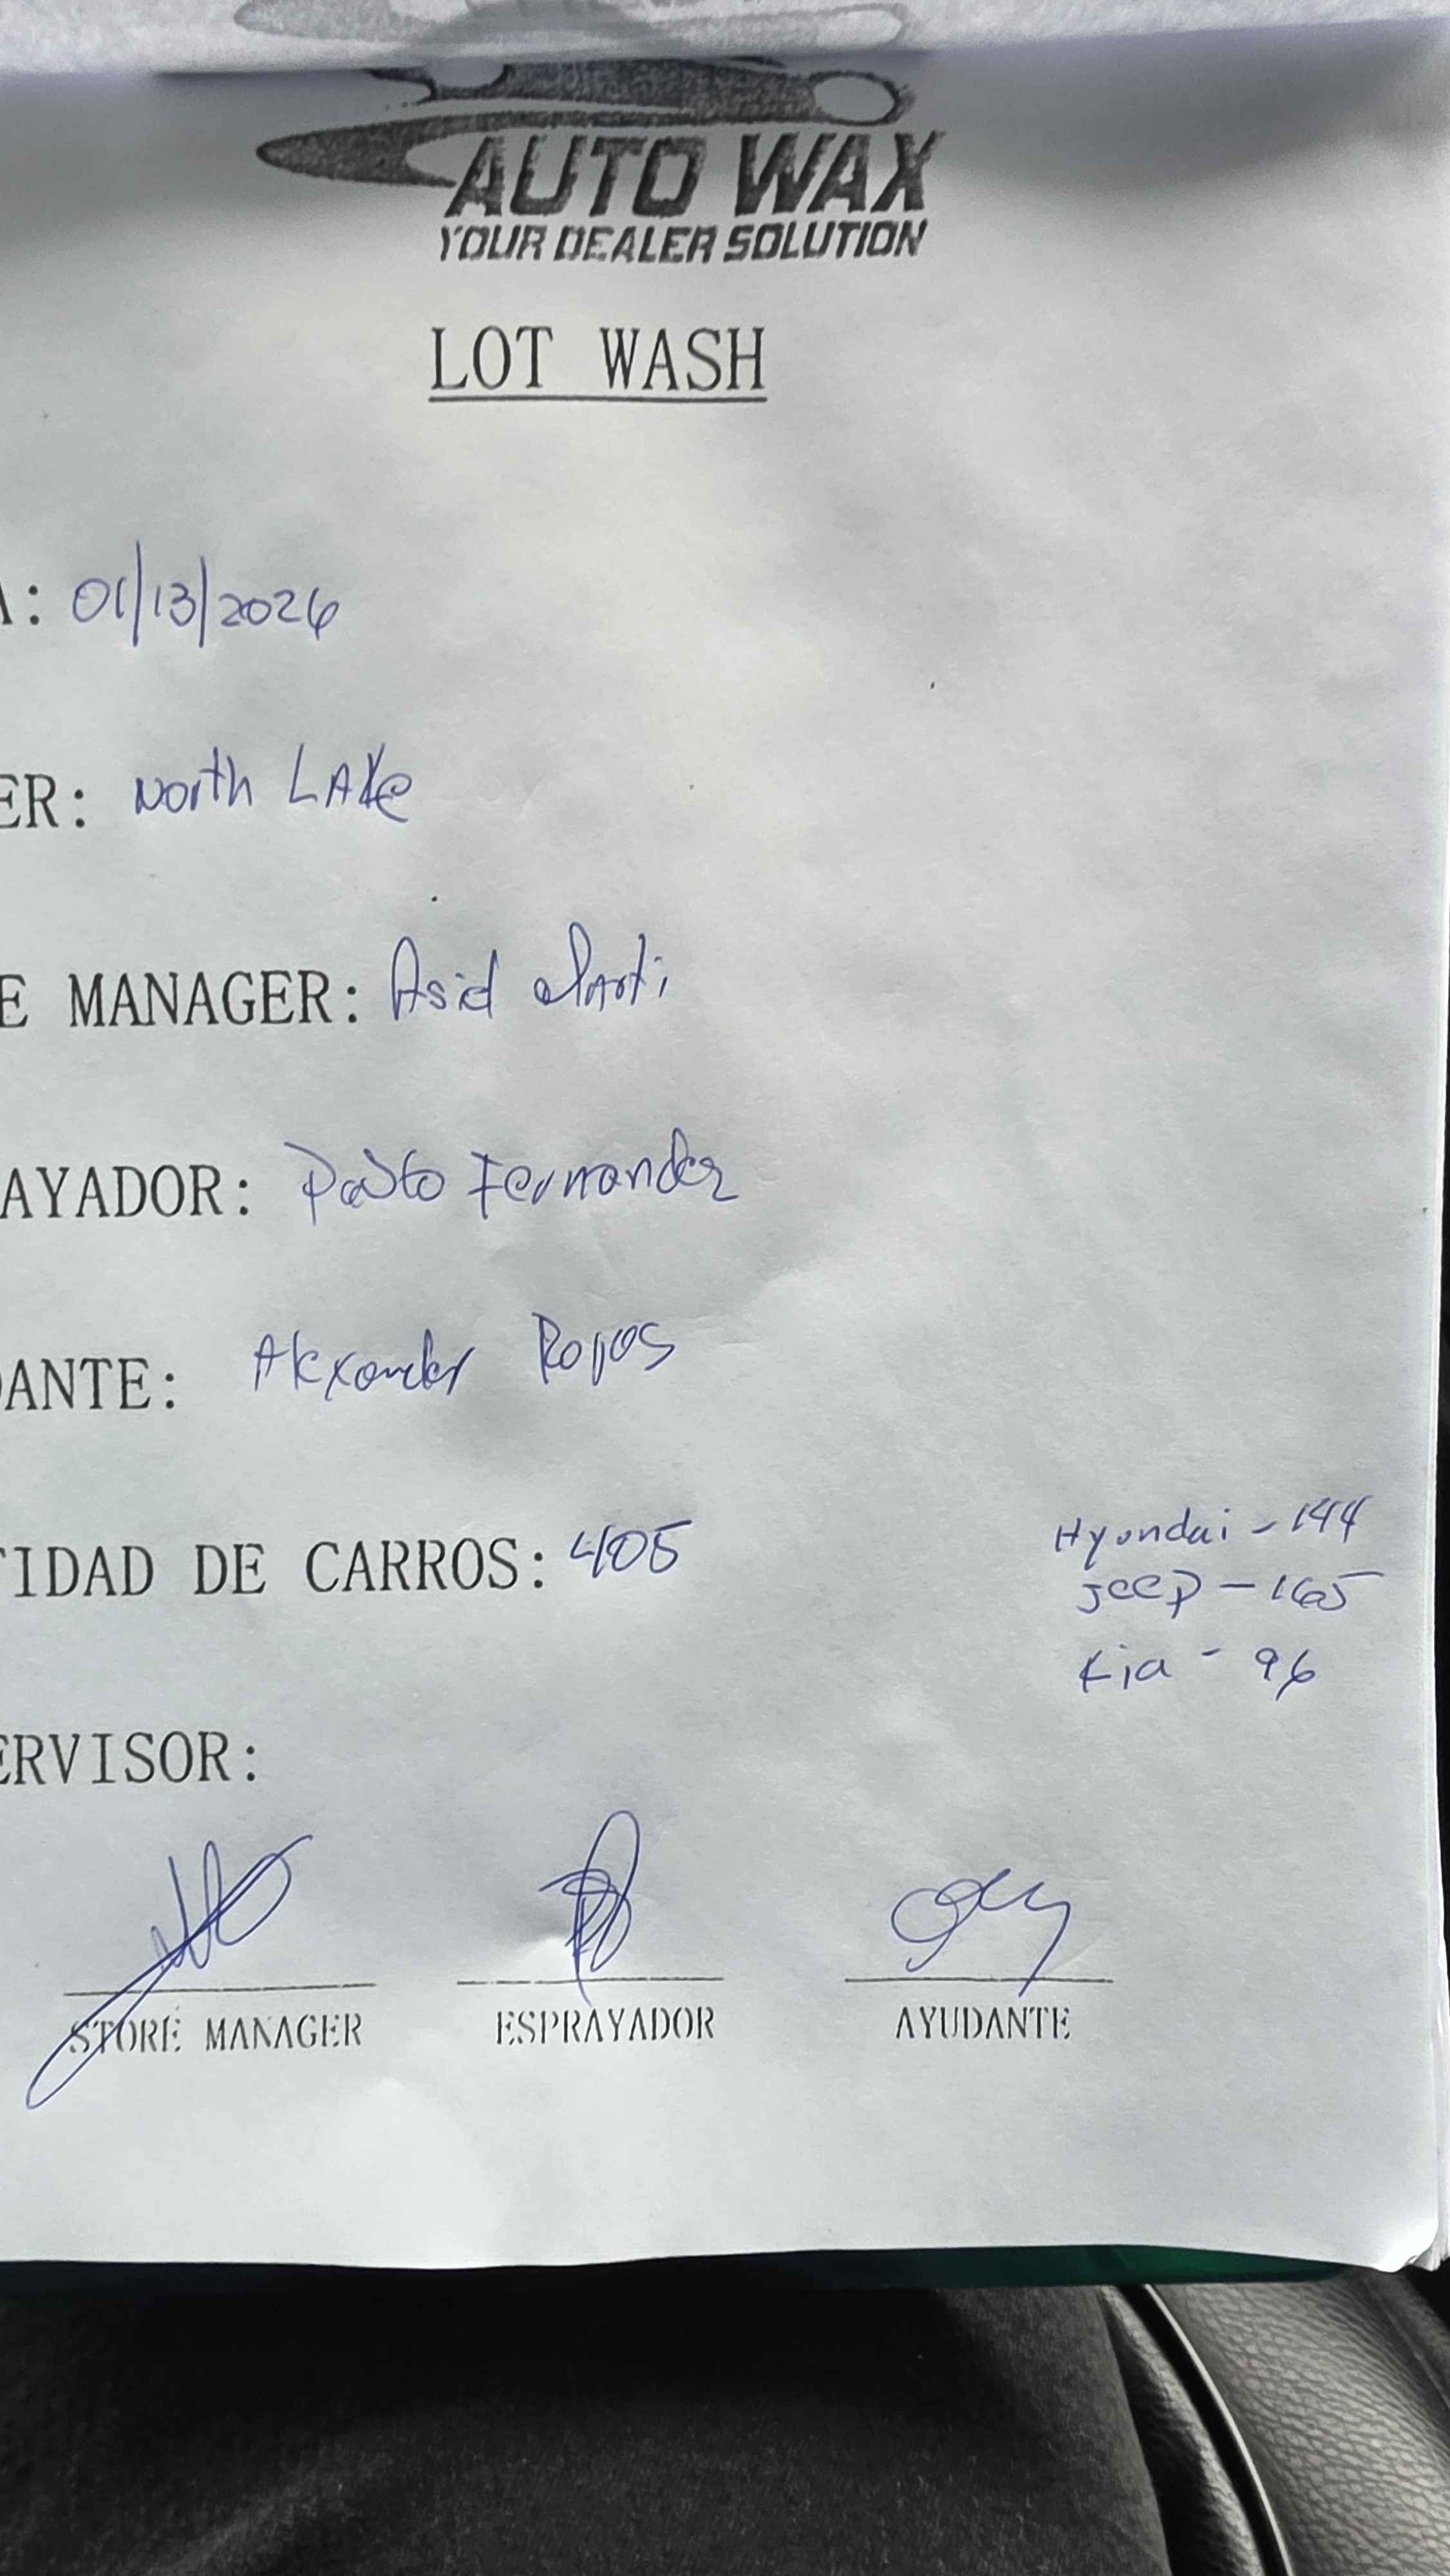 AUTO WAX
YOUR DEALER SOLUTION
LOT WASH
A: 01/13/2026
ER: North LAKe
E MANAGER: Asid
AYADOR: Pablo Fernandez
DANTE: Alexander Rojas
TIDAD DE CARROS: 405
Hyundai - 144
Jeep - 165
Kia - 96
ERVISOR:
STORE MANAGER ESPRAYADOR AYUDANTE